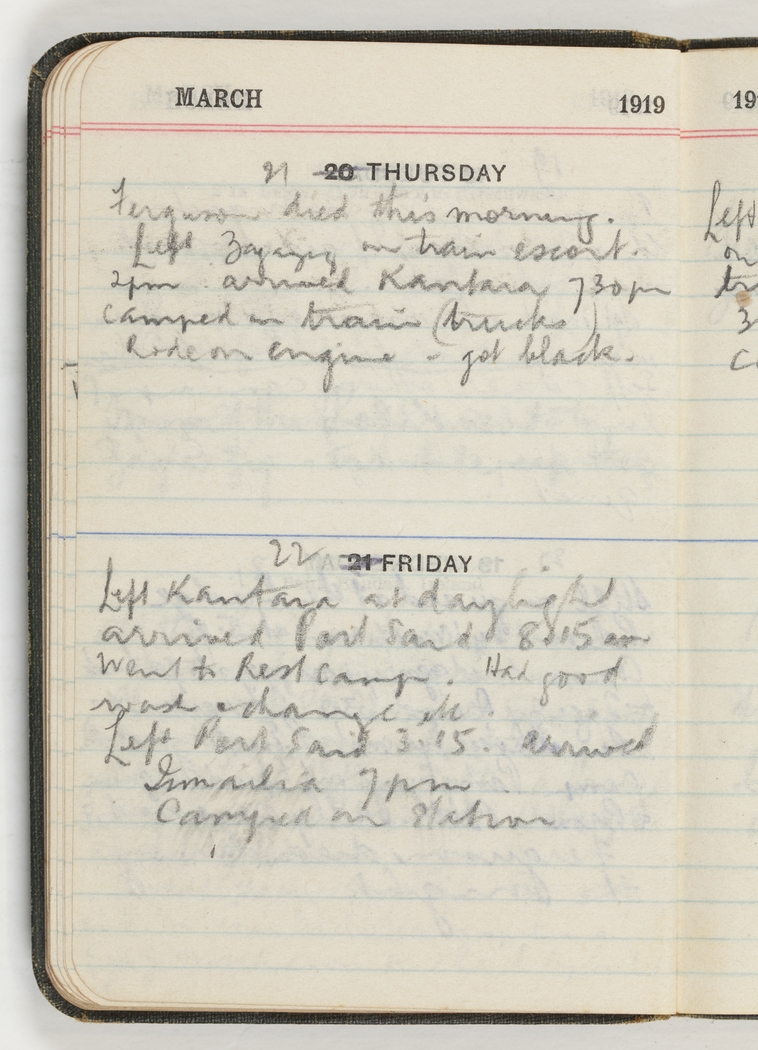 MARCH 1919
21 20 THURSDAY
Ferguson died this morning.
Left Zagazig on train escort.
2pm arrived Kantara 730pm
camped in train (trucks)
Rode on engine - got black.
22 21 FRIDAY
Left Kantara at daylight
arrived Port Said 8.15 am
Went to Rest camp. Had good
wash & change etc.
Left Port Said 3.15. arrived
Ismailia 7pm
Camped on Station
19
Left
on
3